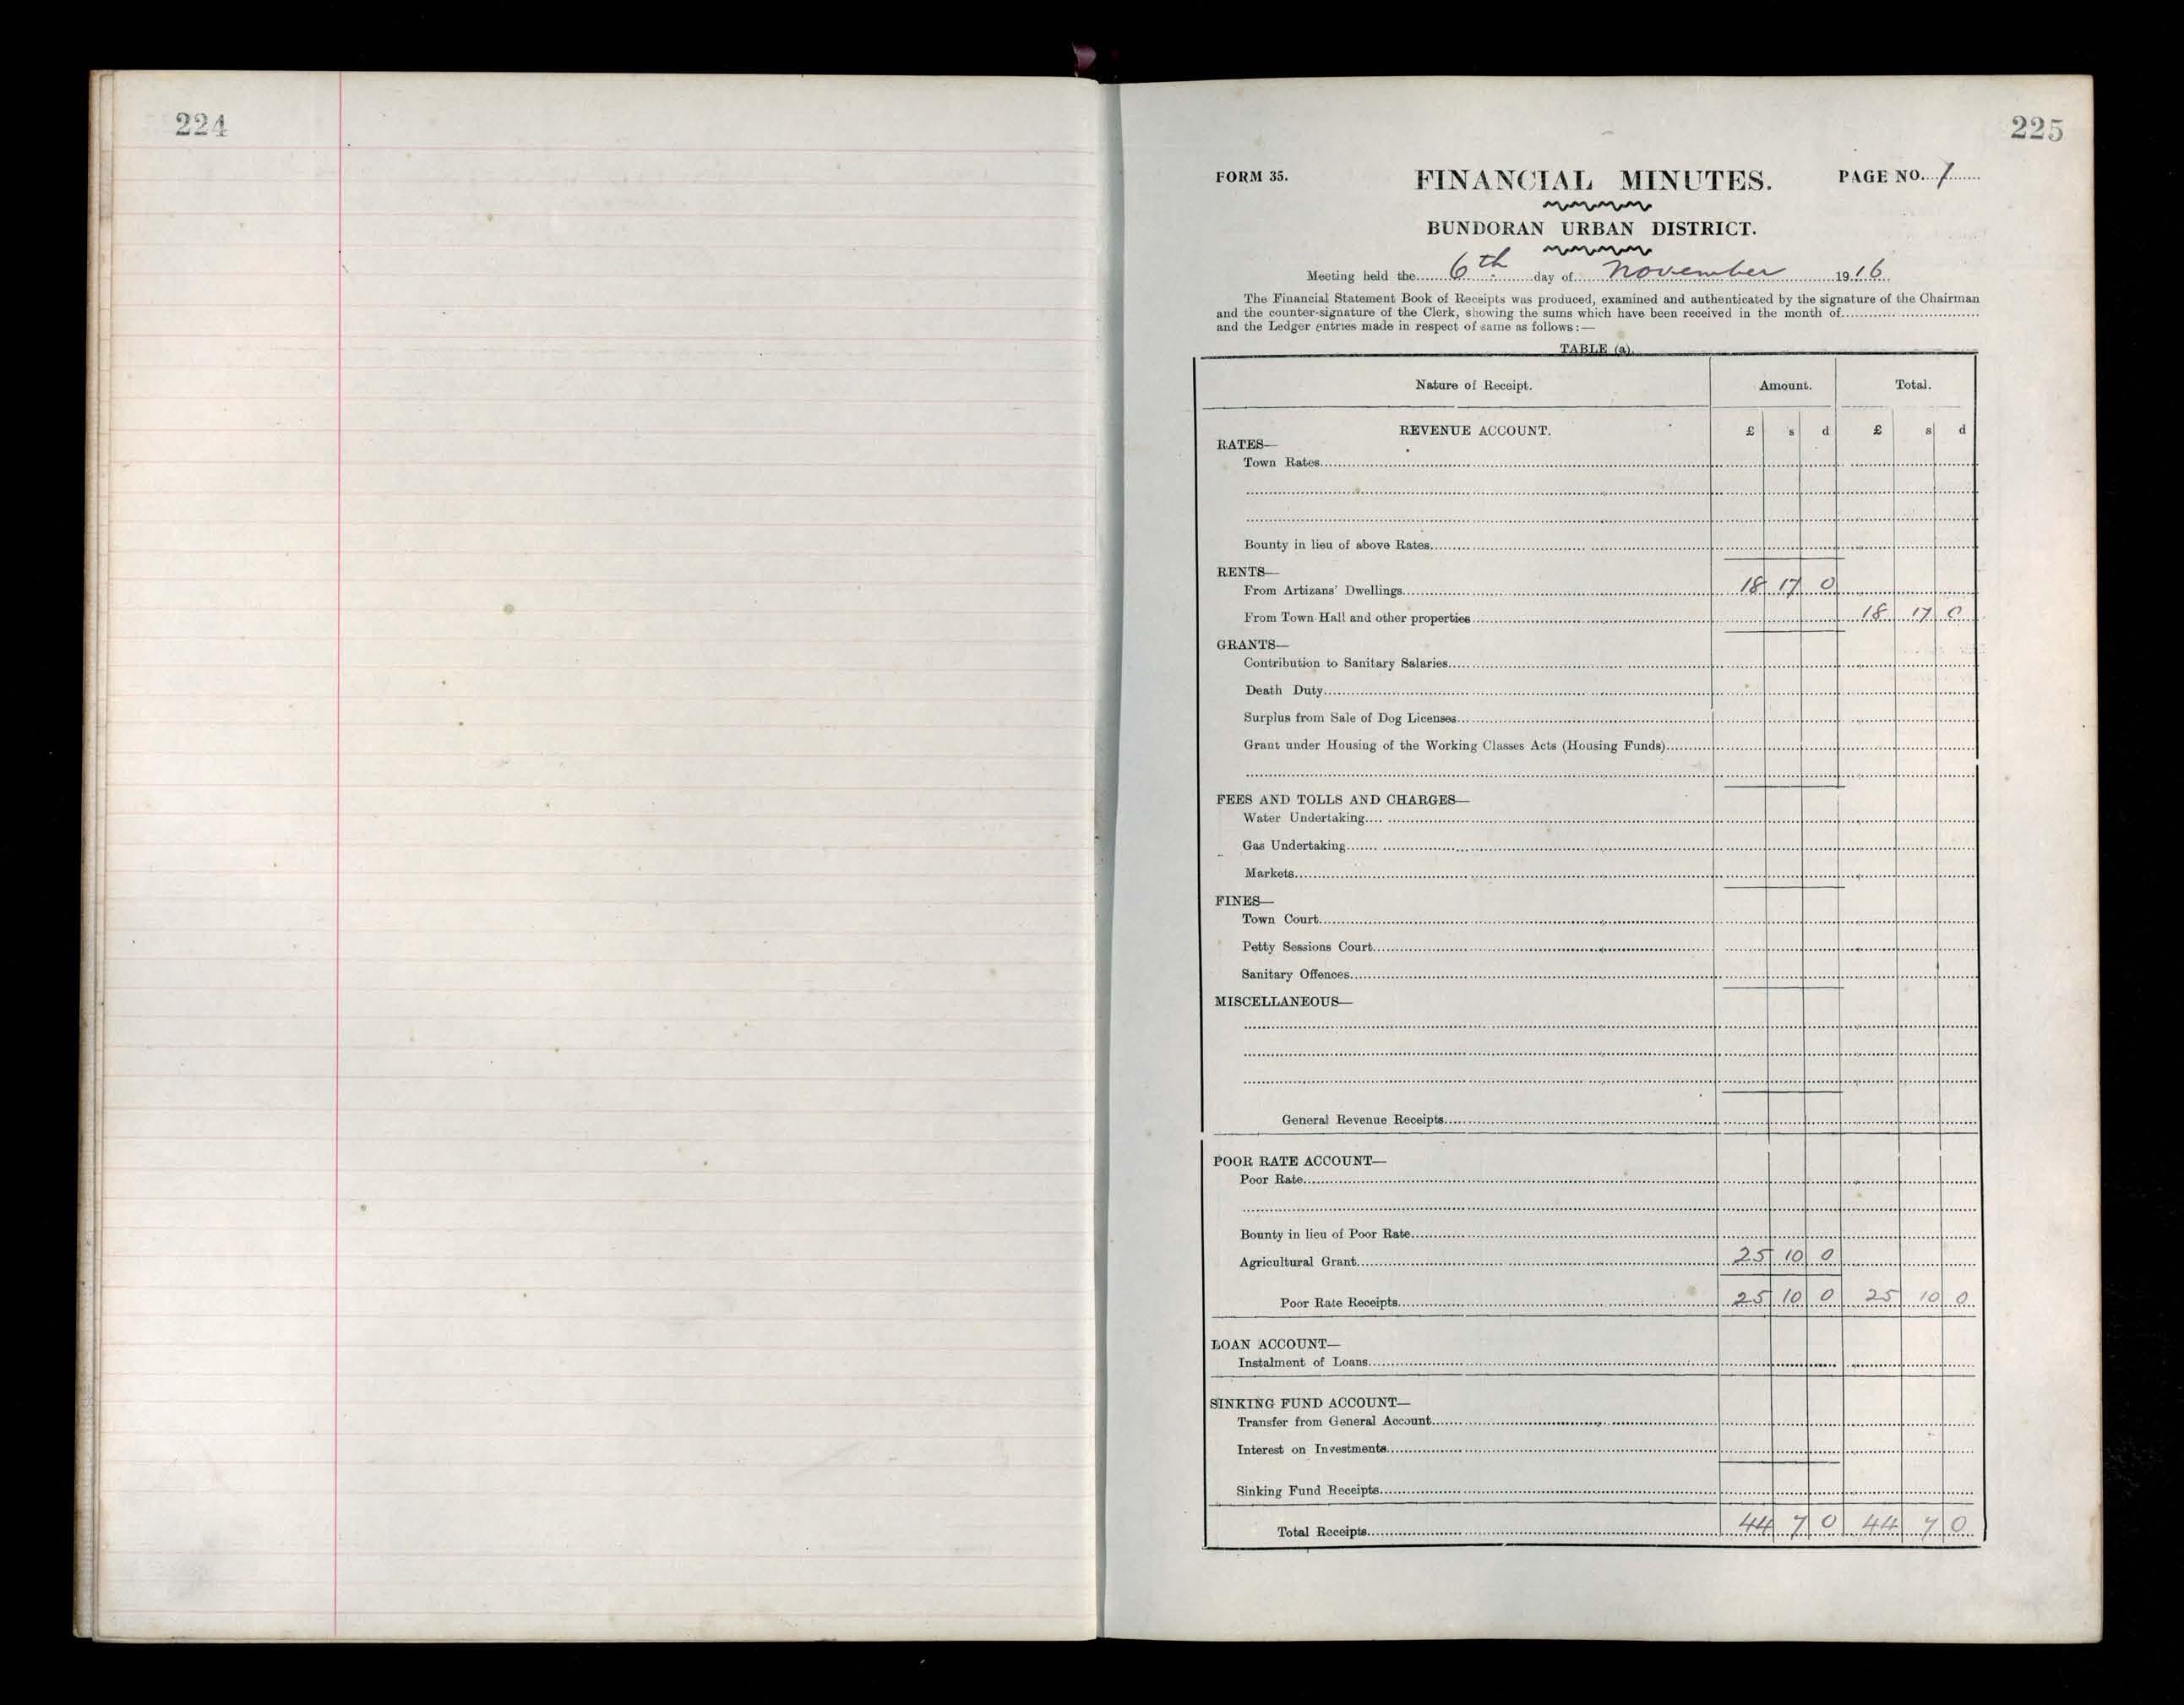 224
225
FORM 35. FINANCIAL MINUTES. PAGE NO. 1
BUNDORAN URBAN DISTRICT.
Meeting held the 6th day of November 1916
The Financial Statement Book of Receipts was produced, examined and authenticated by the signature of the Chairman
and the counter-signature of the Clerk, showing the sums which have been received in the month of
and the Ledger entries made in respect of same as follows:—
TABLE (a).
Nature of Receipt. Amount. Total.
REVENUE ACCOUNT. £ s d £ s d
RATES—
Town Rates
Bounty in lieu of above Rates
RENTS—
From Artizans' Dwellings 18 17 0
From Town Hall and other properties 18 17 0
GRANTS—
Contribution to Sanitary Salaries
Death Duty
Surplus from Sale of Dog Licenses
Grant under Housing of the Working Classes Acts (Housing Funds)
FEES AND TOLLS AND CHARGES—
Water Undertaking
Gas Undertaking
Markets
FINES—
Town Court
Petty Sessions Court
Sanitary Offences
MISCELLANEOUS—
General Revenue Receipts
POOR RATE ACCOUNT—
Poor Rate
Bounty in lieu of Poor Rate
Agricultural Grant 25 10 0
Poor Rate Receipts 25 10 0 25 10 0
LOAN ACCOUNT—
Instalment of Loans
SINKING FUND ACCOUNT—
Transfer from General Account
Interest on Investments
Sinking Fund Receipts
Total Receipts 44 7 0 44 7 0